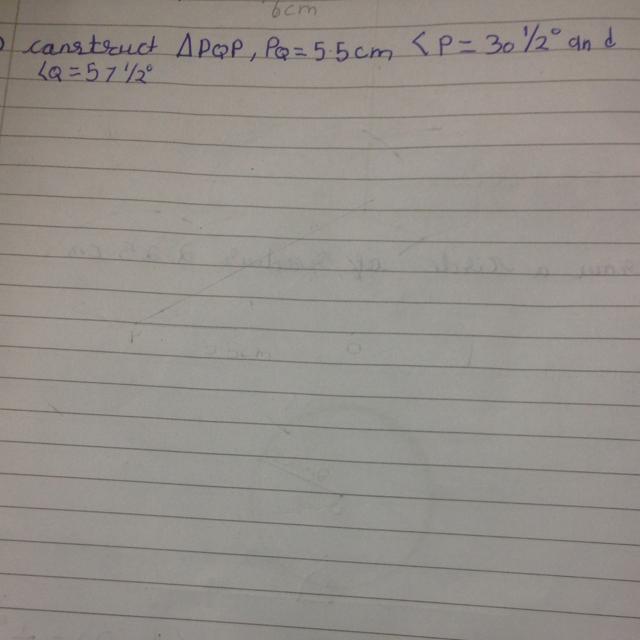 6cm
) construct ΔPQP, PQ = 5.5cm <P = 30 1/2° and
<Q = 57 1/2°
P
5.5cm